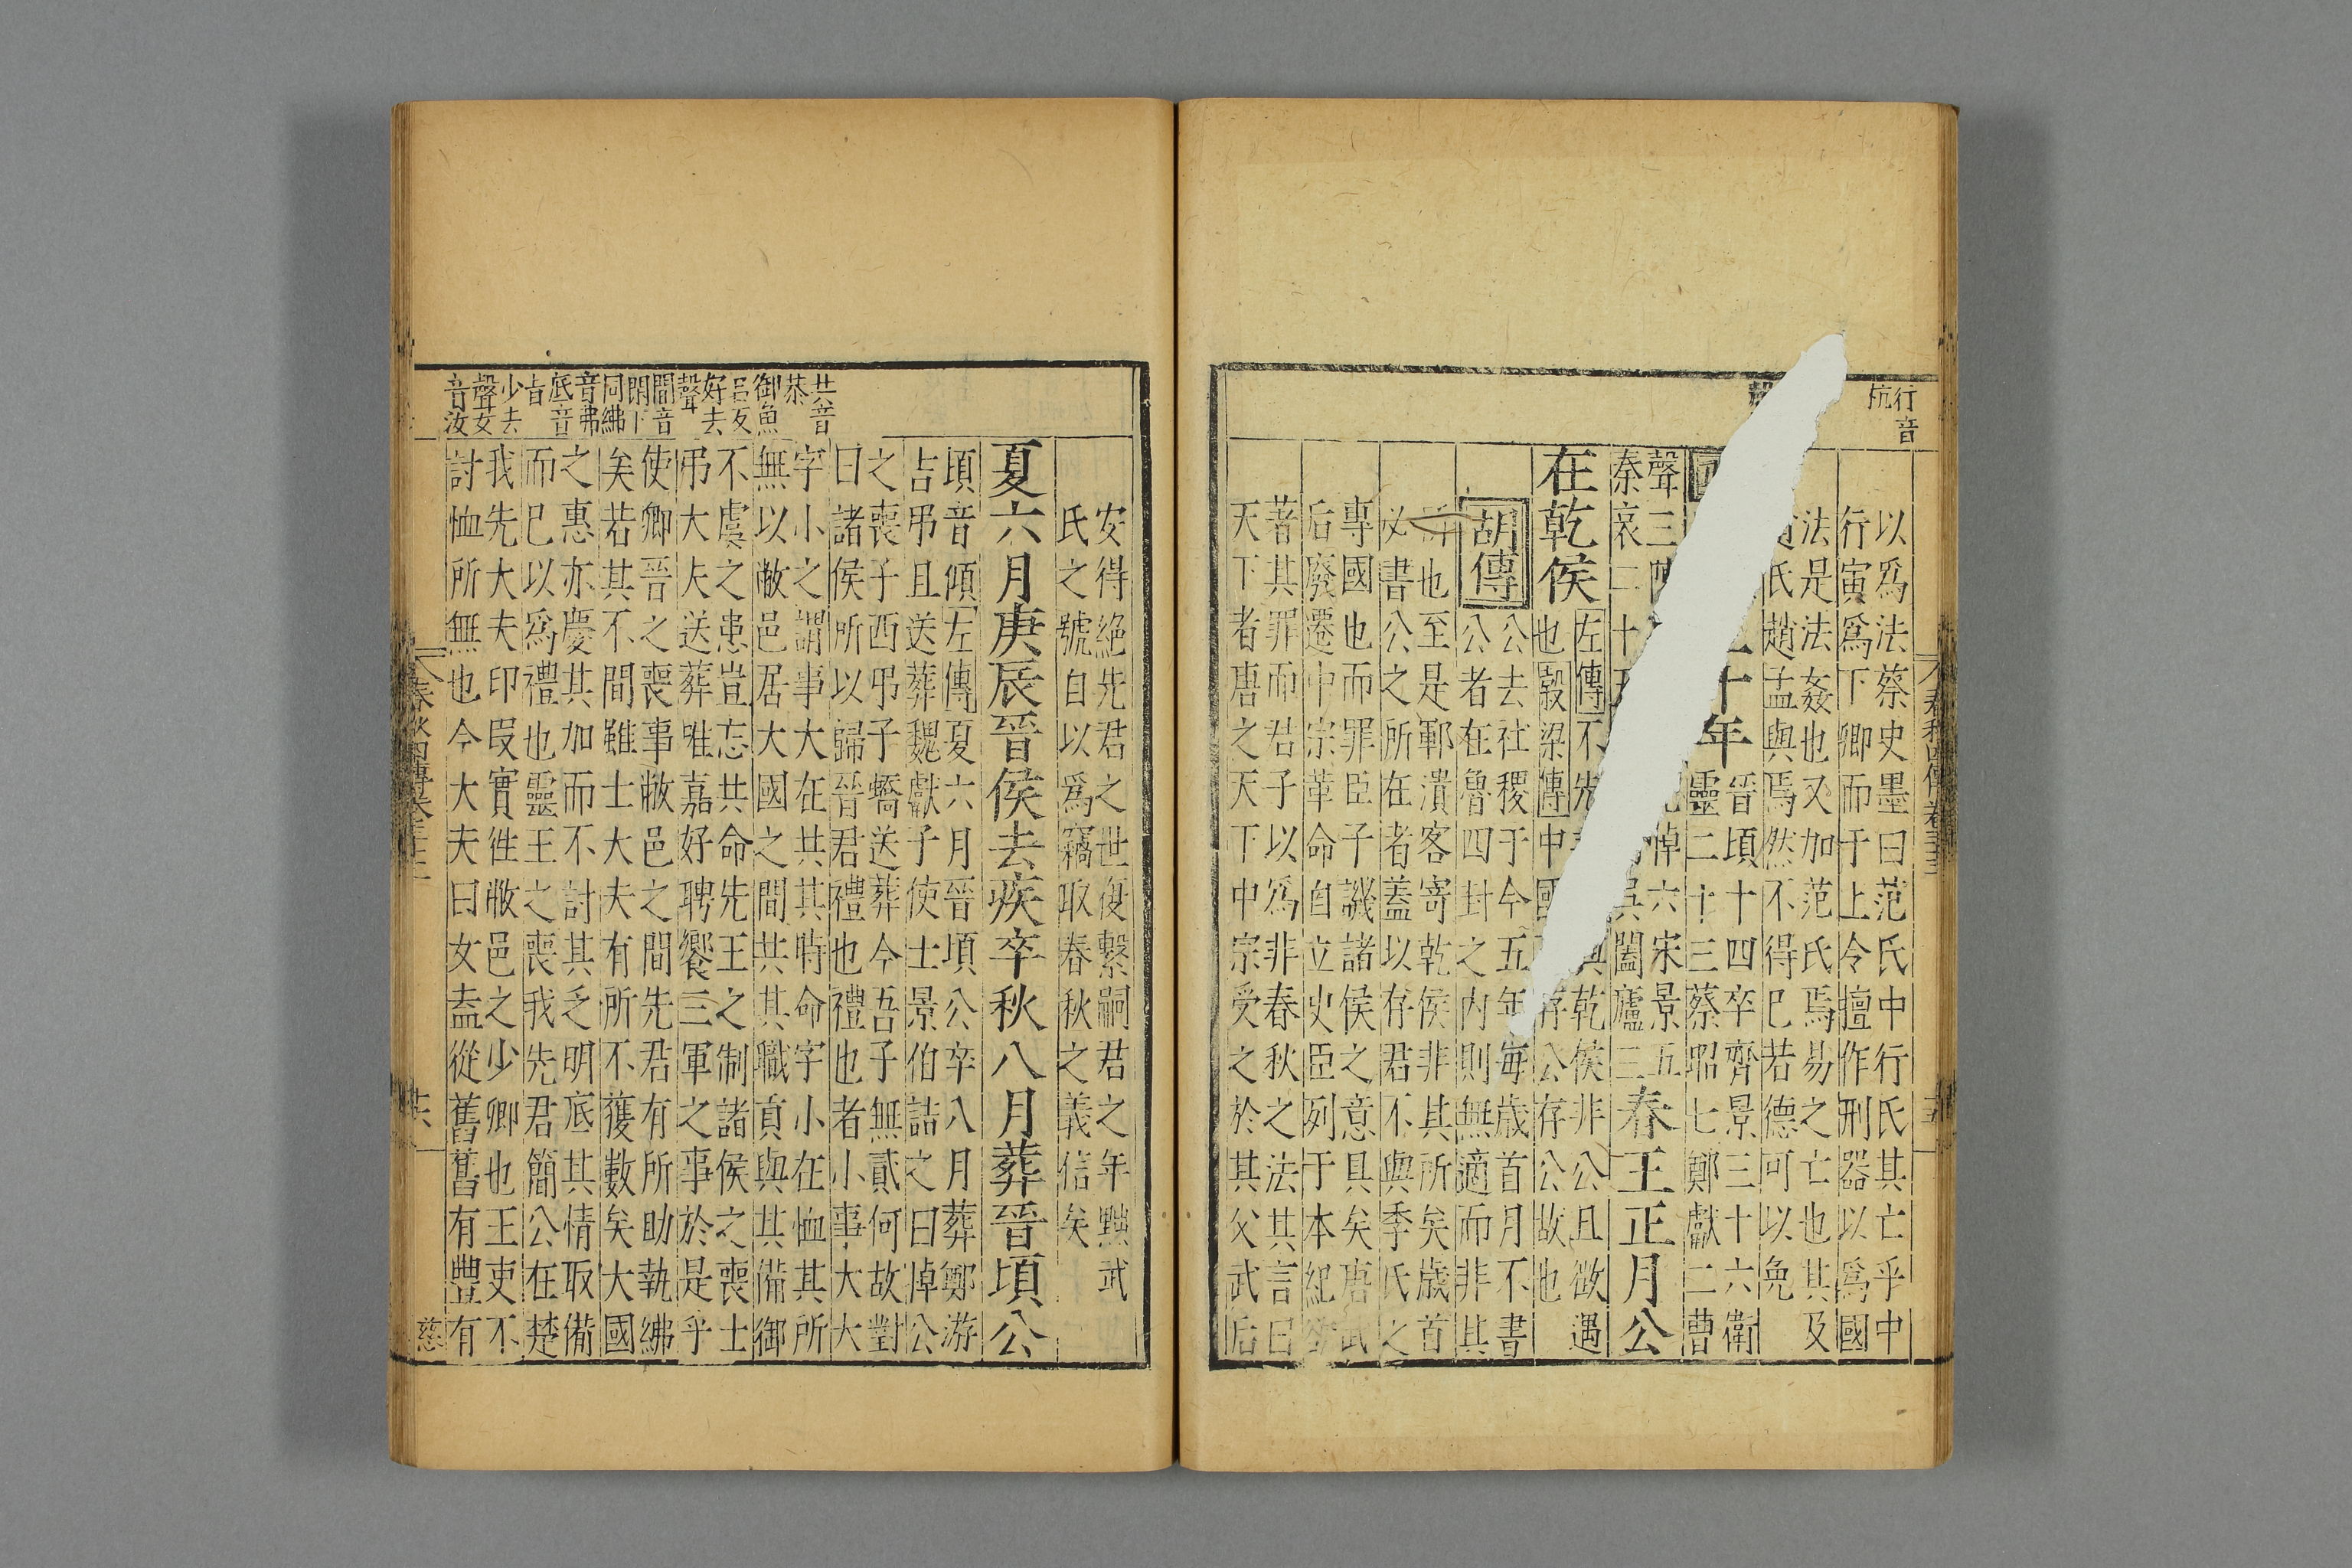 行音
杭
以爲法蔡史墨曰范氏中行氏其亡乎中
行寅爲下卿而于上令擅作刑器以爲國
法是法姦也又加范氏焉易之亡也其及
氏趙孟與焉然不得已若德可以免
十年
晉頃十四卒齊景三十六衛
靈二十三蔡昭七鄭獻二曹
聲三
悼六宋景五
秦哀二十
吳闔廬三
春王正月公
在乾侯
左傳不先
乾侯非公且徵過
也穀梁傳中國
存公存公故也
胡傳
公去社稷于今五年每歲首月不書
公者在魯四封之内則無適而非其
所也至是鄆潰客寄乾侯非其所矣歲首
必書公之所在者蓋以存君不與季氏之
專國也而罪臣子譏諸侯之意具矣唐武
后廢遷中宗革命自立史臣列于本紀欲
著其罪而君子以爲非春秋之法其言曰
天下者唐之天下中宗受之於其父武后
春秋四傳卷三十三
安得絶先君之世復繫嗣君之年黜武
氏之號自以爲竊取春秋之義信矣
夏六月庚辰晉侯去疾卒秋八月葬晉頃公
頃音傾左傳夏六月晉頃公卒八月葬鄭游
吉弔且送葬魏獻子使士景伯詰之曰悼公
之喪子西弔子蟜送葬今吾子無貳何故對
曰諸侯所以歸晉君禮也禮也者小事大大
字小之謂事大在共其時命字小在恤其所
無以敝邑居大國之間共其職貢與其備御
不虞之患豈忘共命先王之制諸侯之喪士
弔大夫送葬唯嘉好聘饗三軍之事於是乎
使卿晉之喪事敝邑之間先君有所助執紼
矣若其不間雖士大夫有所不獲數矣大國
之惠亦慶其加而不討其乏明厎其情取備
而已以爲禮也靈王之喪我先君簡公在楚
我先大夫印段實往敝邑之少卿也王吏不
討恤所無也今大夫曰女盍從舊舊有豐有
共音
恭
御魚
呂反
好去
聲
間音
閑下
同紼
音弗
厎音
旨
少去
聲女
音汝
春秋四傳卷三十三
慈